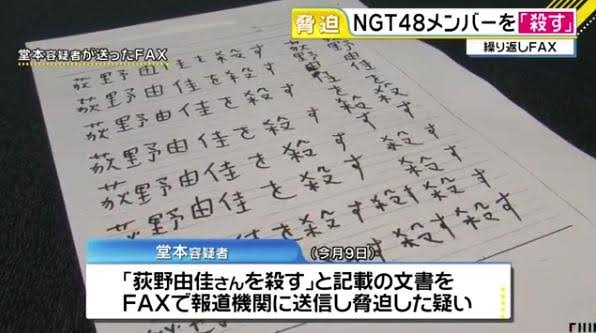 脅迫
NGT48メンバーを「殺す」
繰り返しFAX
堂本容疑者が送ったFAX
荻野由佳を殺す
荻野由佳を殺す
荻野由佳を殺す
荻野由佳を殺す
荻野由佳を殺す
荻野由佳を殺す
荻野由佳を殺す
堂本容疑者
(今月9日)
「荻野由佳さんを殺す」と記載の文書を
FAXで報道機関に送信し脅迫した疑い